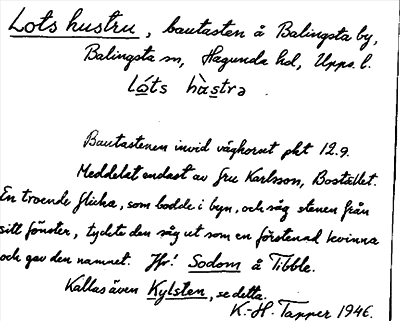 Lots hustru, bautasten å Balingsta by,
Balingsta sn, Hagunda hd, Upps. l.
Lóts hùstrə
Bautastenen invid vägkorset pkt 12.9.
Meddelat endast av fru Karlsson, Bostället.
En troende flicka, som bodde i byn, och såg stenen från
sitt fönster, tyckte den såg ut som en förstenad kvinna
och gav den namnet. Jfr! Sodom å Tibble.
Kallas även Kylsten, se detta.
K.-H. Tapper 1946.